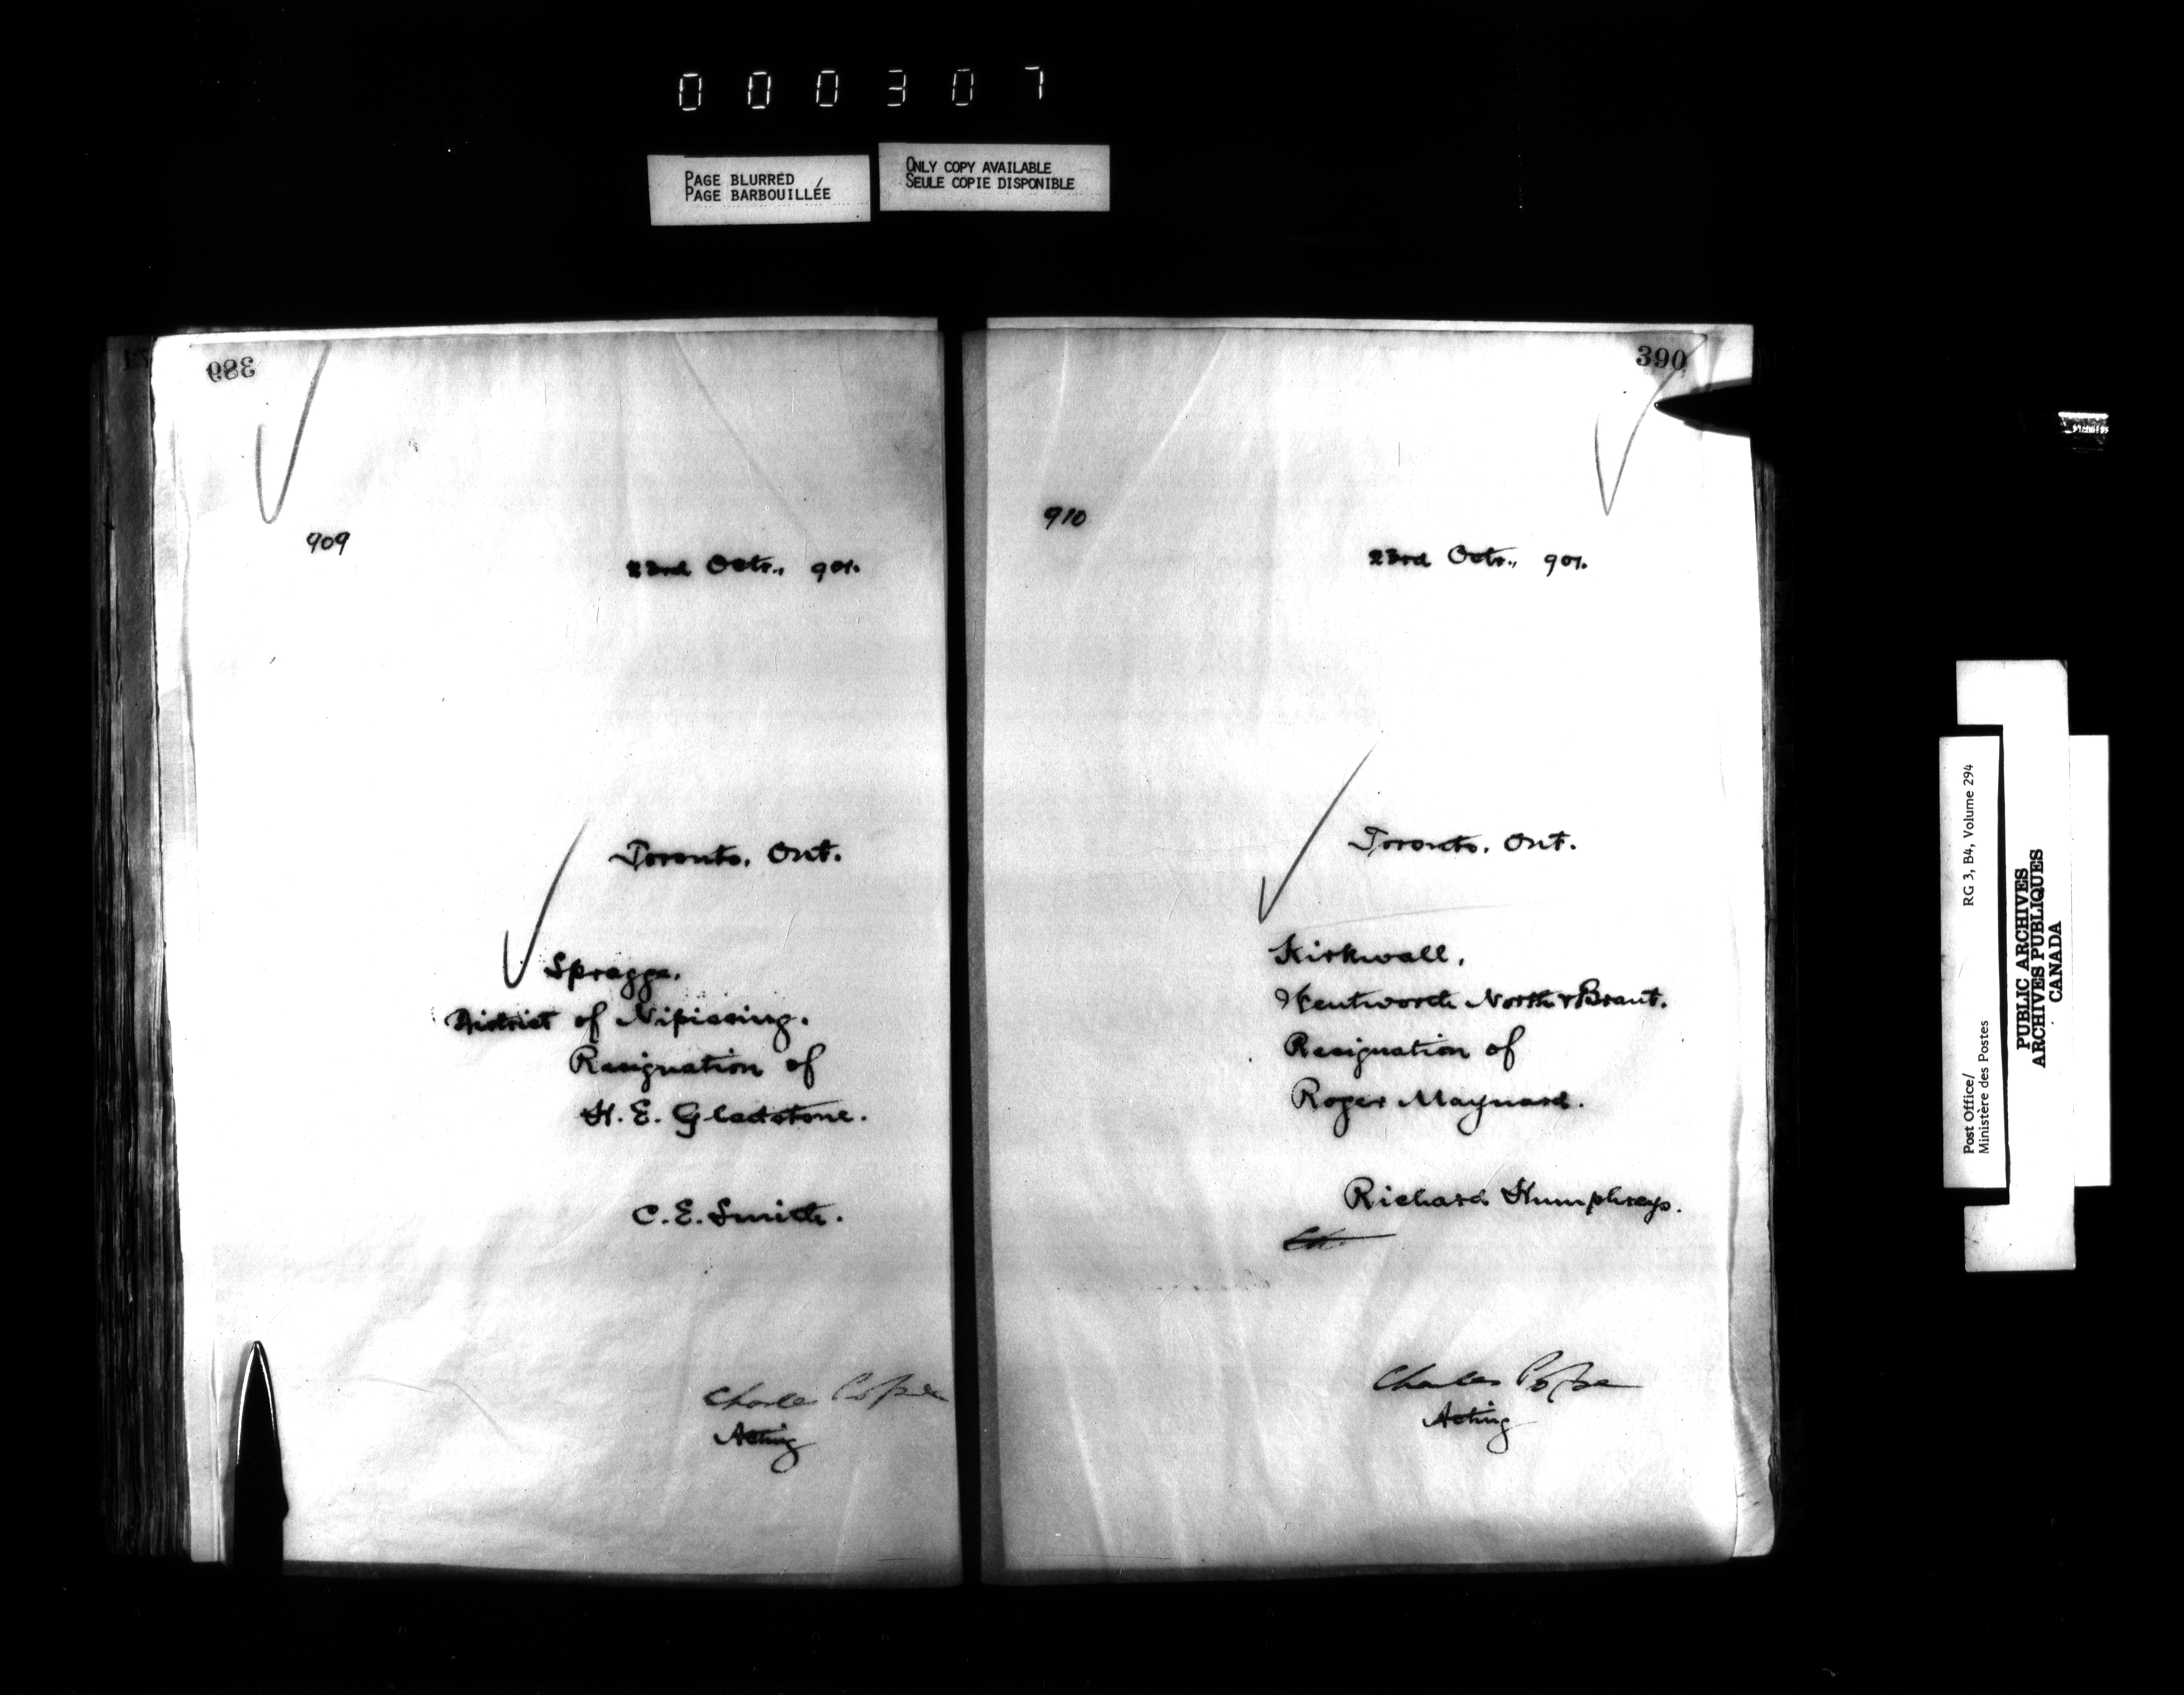 000307
PAGE BLURRED
PAGE BARBOUILLÉE
ONLY COPY AVAILABLE
SEULE COPIE DISPONIBLE
389
909
23rd Octr., 901.
Toronto, Ont.
Spragge,
District of Nipissing.
Resignation of
H. E. Gladstone.
C. E. Smith.
Charles Pope
Acting
390
910
23rd Octr., 901.
Toronto, Ont.
Kirkwall,
Wentworth North & Brant.
Resignation of
Roger Maynard.
Richard Humphreys.
Charles Pope
Acting
Post Office/
Ministère des Postes
RG 3, B4, Volume 294
PUBLIC ARCHIVES
ARCHIVES PUBLIQUES
CANADA